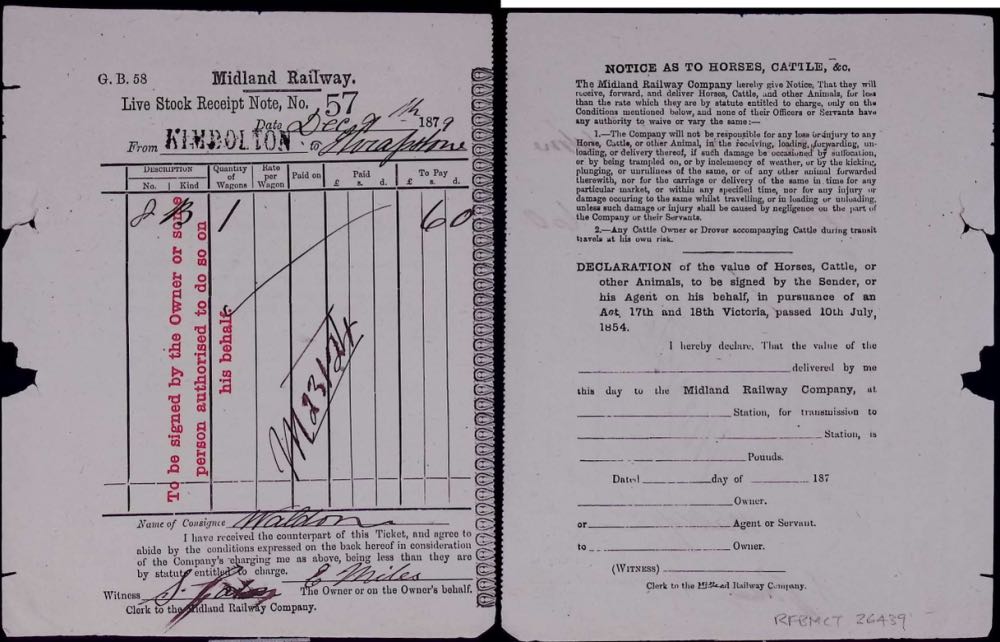 G. B. 58
Midland Railway.
Live Stock Receipt Note, No. 57
Date Dec 9th 1879
From KIMBOLTON to Thrapstone
DESCRIPTION
No. Kind
Quantity of Wagons
Rate per Wagon
Paid on
Paid
£ s. d.
To Pay
£ s. d.
1 6 0
M 23124
To be signed by the Owner or some
person authorised to do so on
his behalf.
Name of Consignee Waldon
I have received the counterpart of this Ticket, and agree to
abide by the conditions expressed on the back hereof in consideration
of the Company's charging me as above, being less than they are
by statute entitled to charge.
E Miles
Witness S.
The Owner or on the Owner's behalf.
Clerk to the Midland Railway Company.
NOTICE AS TO HORSES, CATTLE, &c.
The Midland Railway Company hereby give Notice, That they will
receive, forward, and deliver Horses, Cattle, and other Animals, for less
than the rate which they are by statute entitled to charge, only on the
Conditions mentioned below, and none of their Officers or Servants have
any authority to waive or vary the same:—
1.—The Company will not be responsible for any loss or injury to any
Horse, Cattle, or other Animal, in the receiving, loading, forwarding, un-
loading, or delivery thereof, if such damage be occasioned by suffocation,
or by being trampled on, or by inclemency of weather, or by the kicking,
plunging, or unruliness of the same, or of any other animal forwarded
therewith, nor for the carriage or delivery of the same in time for any
particular market, or within any specified time, nor for any injury or
damage occuring to the same whilst travelling, or in loading or unloading,
unless such damage or injury shall be caused by negligence on the part of
the Company or their Servants.
2.—Any Cattle Owner or Drover accompanying Cattle during transit
travels at his own risk.
DECLARATION of the value of Horses, Cattle, or
other Animals, to be signed by the Sender, or
his Agent on his behalf, in pursuance of an
Act, 17th and 18th Victoria, passed 10th July,
1854.
I hereby declare, That the value of the
delivered by me
this day to the Midland Railway Company, at
Station, for transmission to
Station, is
Pounds.
Dated day of 187
Owner.
or Agent or Servant.
to Owner.
(WITNESS)
Clerk to the Midland Railway Company.
RFBMCT 26439